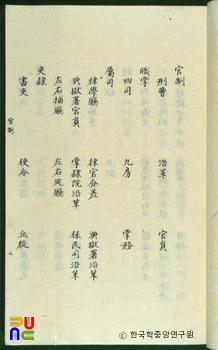 官制
刑曹 沿革 官員
職掌
四司 九房 掌務
屬司
律學廳 律官分差
典獄署官員 典獄署沿革
掌隸院沿革 保民司沿革
左右捕廳 左右巡廳
吏隸
書吏 使令 丘從
官制
二
한국학중앙연구원